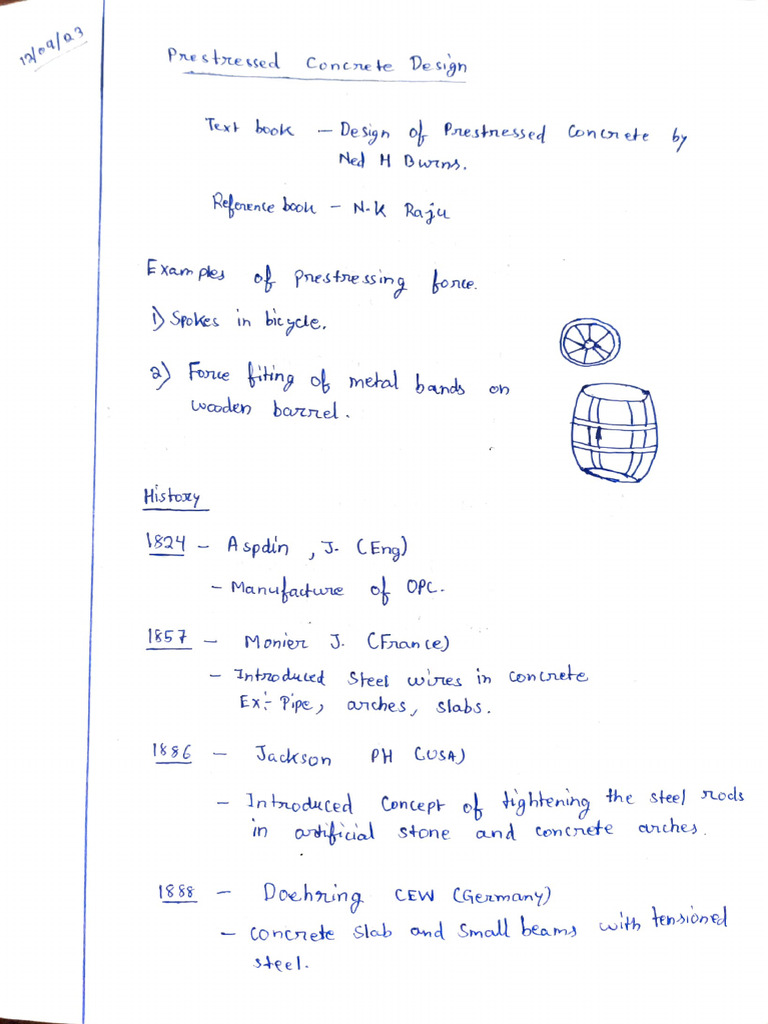 12/09/23
Prestressed Concrete Design
Text book - Design of Prestressed Concrete by
Ned H Burns.
Reference book - N.K Raju
Examples of prestressing force.
1) Spokes in bicycle.
2) Force fiting of metal bands on
wooden barrel.
History
1824 - Aspdin, J. (Eng)
- Manufacture of OPC.
1857 - Monier J. (France)
- Introduced Steel wires in concrete
Ex:- Pipe, arches, slabs.
1886 - Jackson PH (USA)
- Introduced Concept of tightening the steel rods
in artificial stone and concrete arches.
1888 - Doehring CEW (Germany)
- Concrete slab and small beams with tensioned
steel.